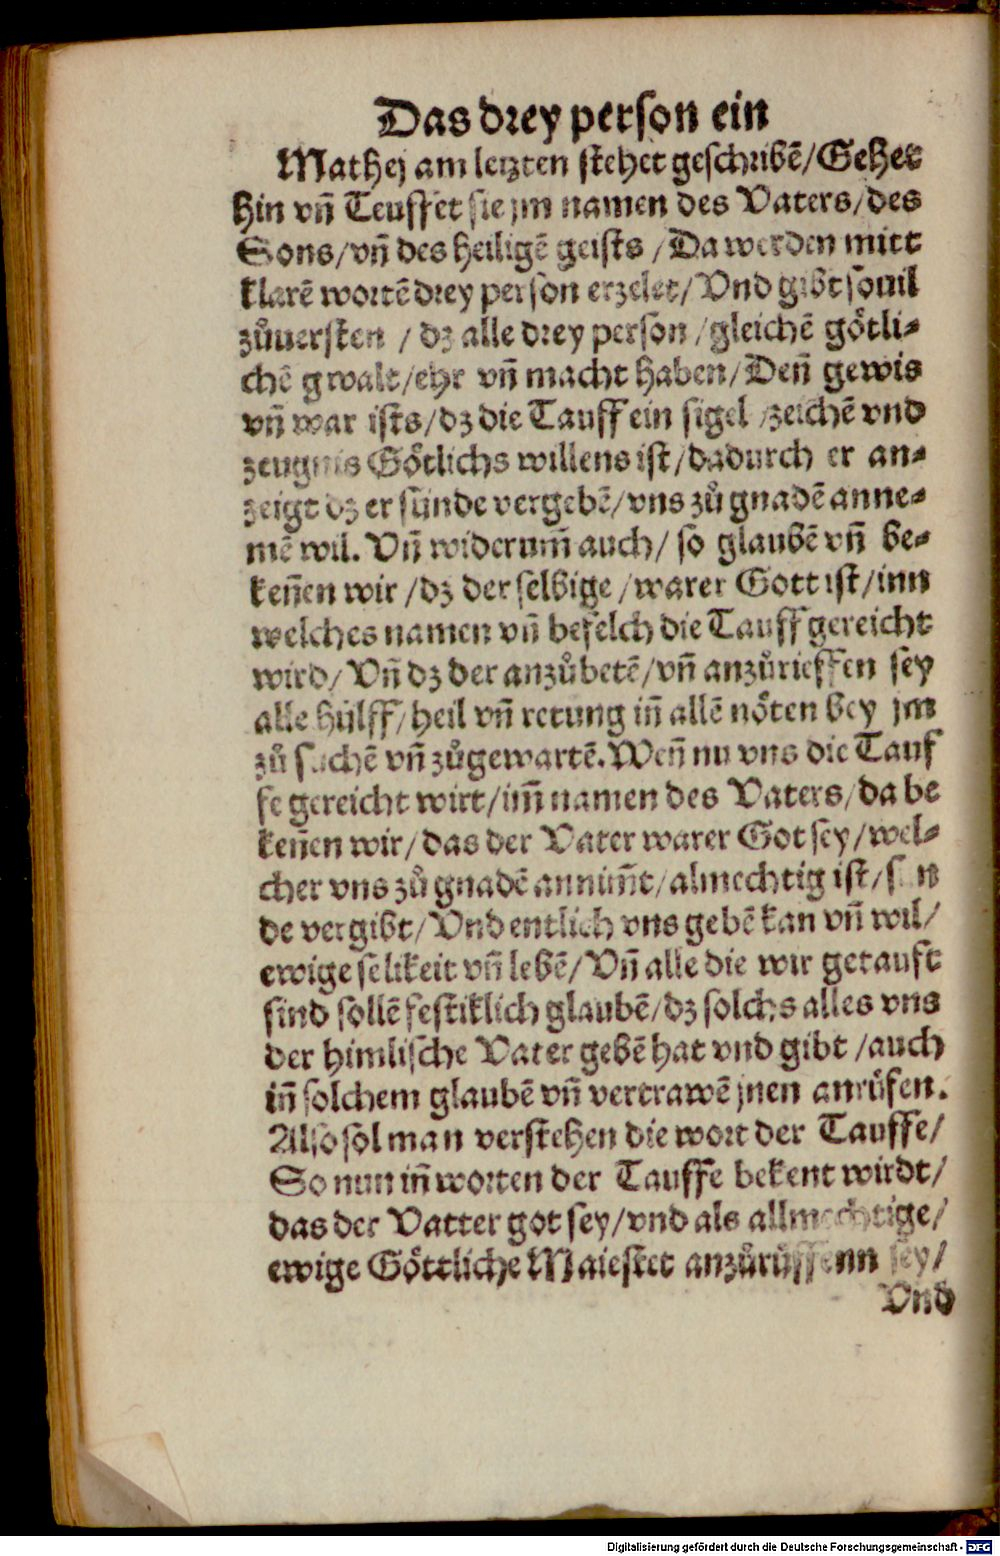 Das drey person ein
Mathej am letzten stehet geschribē/Gehet
hin vn̄ Teuffet sie jm namen des Vaters/des
Sons/vn̄ des heiligē geists /Da werden mitt
klarē wortē drey person erzelet/Vnd gibt souil
zůuersten / dz alle drey person /gleichē götli-
chē gwalt/ehr vn̄ macht haben/Den̄ gewis
vn̄ war ists/dz die Tauff ein sigel /zeichē vnd
zeugnis Götlichs willens ist/dadurch er an-
zeigt dz er sünde vergebē/vns zů gnadē anne-
mē wil. Vn̄ widerum̄ auch/ so glaubē vn̄ be-
ken̄en wir /dz der selbige /warer Gott ist/inn
welches namen vn̄ befelch die Tauff gereicht
wird/ Vn̄ dz der anzůbetē/vn̄ anzůrieffen sey
alle hülff/heil vn̄ retung in̄ allē nöten bey jm
zů suchē vn̄ zůgewartē. Wen̄ nu vns die Tauf
fe gereicht wirt/im̄ namen des Vaters/da be
ken̄en wir/das der Vater warer Got sey/wel-
cher vns zů gnadē annim̄t/almechtig ist/sün
de vergibt/Vnd entlich vns gebē kan vn̄ wil/
ewige selikeit vn̄ lebē/Vn̄ alle die wir getauft
sind sollē festiklich glaubē/dz solchs alles vns
der himlische Vater gebē hat vnd gibt /auch
in̄ solchem glaubē vn̄ vertrawē jnen anrüfen.
Also sol man verstehen die wort der Tauffe/
So nun in̄ worten der Tauffe bekent wirdt/
das der Vatter got sey/vnd als allmechtige/
ewige Göttliche Maiestet anzůrůffenn sey/
Vnd
Digitalisierung gefördert durch die Deutsche Forschungsgemeinschaft - DFG